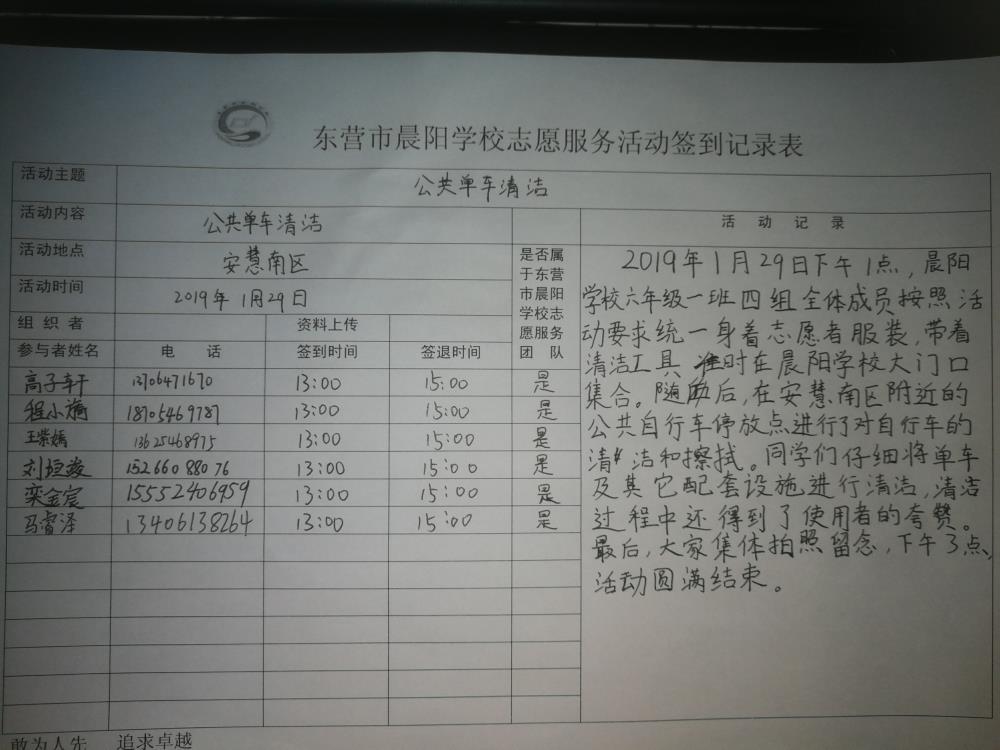 东营市晨阳学校志愿服务活动签到记录表
活动主题 公共单车清洁
活动内容 公共单车清洁
活动地点 安慧南区
活动时间 2019年1月29日
组织者 资料上传
参与者姓名 电话 签到时间 签退时间 是否属于东营市晨阳学校志愿服务团队
高子轩 13706471670 13:00 15:00 是
程小 18705469787 13:00 15:00 是
王紫嫣 13625468975 13:00 15:00 是
刘垣 15266088076 13:00 15:00 是
栾金宸 15552406959 13:00 15:00 是
马睿泽 13406138264 13:00 15:00 是
活动记录
2019年1月29日下午1点,晨阳
学校六年级一班四组全体成员按照活
动要求统一身着志愿者服装,带着
清洁工具准时在晨阳学校大门口
集合。随即后,在安慧南区附近的
公共自行车停放点进行了对自行车的
清洁和擦拭。同学们仔细将单车
及其它配套设施进行清洁,清洁
过程中还得到了使用者的夸赞。
最后,大家集体拍照留念,下午3点,
活动圆满结束。
敢为人先 追求卓越